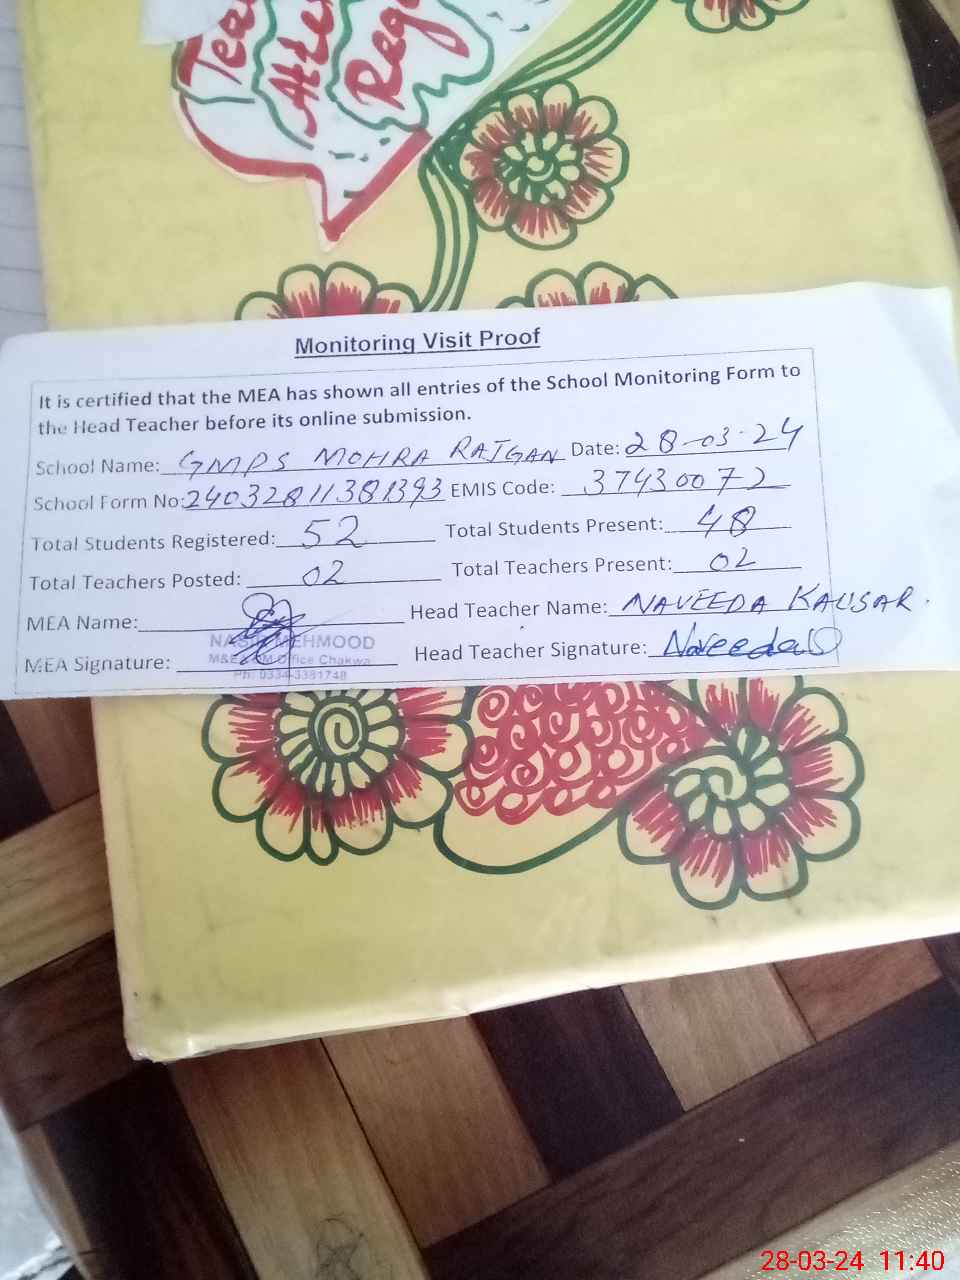 Tea
Atte
Reg
Monitoring Visit Proof
It is certified that the MEA has shown all entries of the School Monitoring Form to
the Head Teacher before its online submission.
School Name: GMPS MOHRA RAJGAN Date: 28-03-24
School Form No: 24032811381393 EMIS Code: 37430072
Total Students Registered: 52 Total Students Present: 48
Total Teachers Posted: 02 Total Teachers Present: 02
MEA Name: Head Teacher Name: NAVEEDA KAUSAR.
MEHMOOD
MEA Signature: Head Teacher Signature: Naveeda
Office Chakwa
Ph: 0334-3381748
28-03-24 11:40